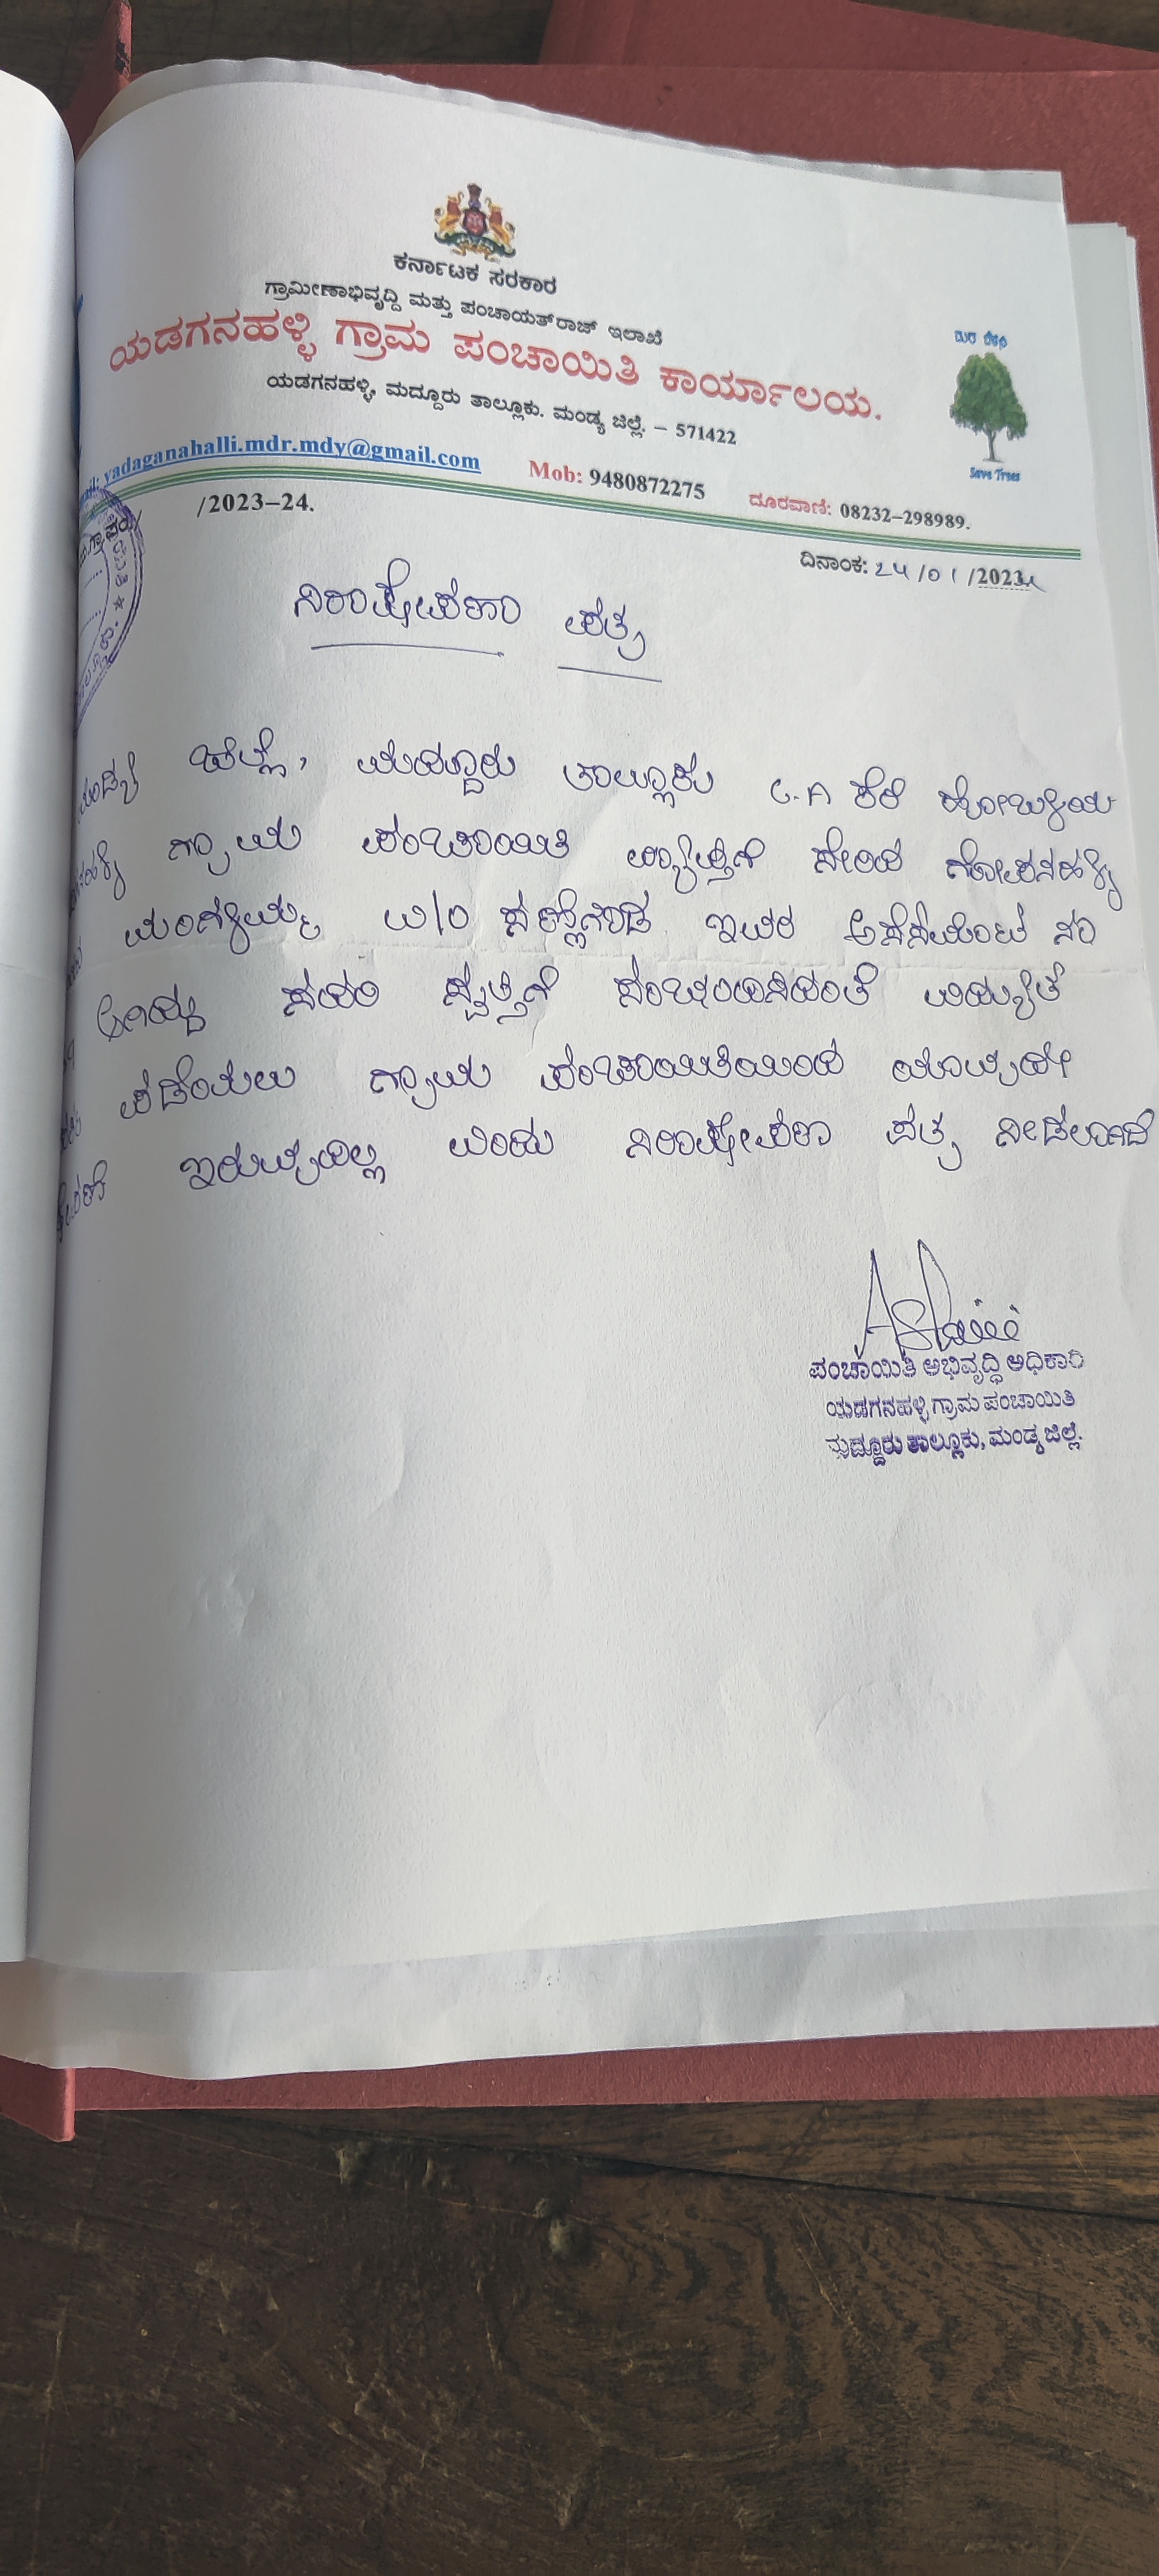 ಕರ್ನಾಟಕ ಸರಕಾರ
ಗ್ರಾಮೀಣಾಭಿವೃದ್ದಿ ಮತ್ತು ಪಂಚಾಯತ್‌ರಾಜ್ ಇಲಾಖೆ
ಯಡಗನಹಳ್ಳಿ ಗ್ರಾಮ ಪಂಚಾಯಿತಿ ಕಾರ್ಯಾಲಯ.
ಯಡಗನಹಳ್ಳಿ, ಮದ್ದೂರು ತಾಲ್ಲೂಕು. ಮಂಡ್ಯ ಜಿಲ್ಲೆ. – 571422
Save Trees
yadaganahalli.mdr.mdy@gmail.com Mob: 9480872275 ದೂರವಾಣಿ: 08232–298989.
/2023–24.
ದಿನಾಂಕ: 24/01/2024
ನಿರಾಪೇಕ್ಷಣಾ ಪತ್ರ
ಜಿಲ್ಲೆ, ಮದ್ದೂರು ತಾಲ್ಲೂಕು C.A ಕೆರೆ ಹೋಬಳಿಯ
ಗ್ರಾಮ ಪಂಚಾಯಿತಿ ವ್ಯಾಪ್ತಿಗೆ ಸೇರಿದ
ಮಂಗಳಮ್ಮ W/O ಇವರ ಅಸೆಸಮೆಂಟ್ ನಂ
ಆಗಿದ್ದು ಸದರಿ ಸ್ವತ್ತಿಗೆ ಸಂಬಂದಿಸಿದಂತೆ ವಿದ್ಯುತ್
ಪಡೆಯಲು ಗ್ರಾಮ ಪಂಚಾಯಿತಿಯಿಂದ ಯಾವುದೇ
ಇರುವುದಿಲ್ಲ ಎಂದು ನಿರಾಪೇಕ್ಷಣಾ ಪತ್ರ ನೀಡಲಾಗಿದೆ
ಪಂಚಾಯಿತಿ ಅಭಿವೃದ್ಧಿ ಅಧಿಕಾರಿ
ಯಡಗನಹಳ್ಳಿ ಗ್ರಾಮ ಪಂಚಾಯಿತಿ
ಮದ್ದೂರು ತಾಲ್ಲೂಕು, ಮಂಡ್ಯ ಜಿಲ್ಲೆ.